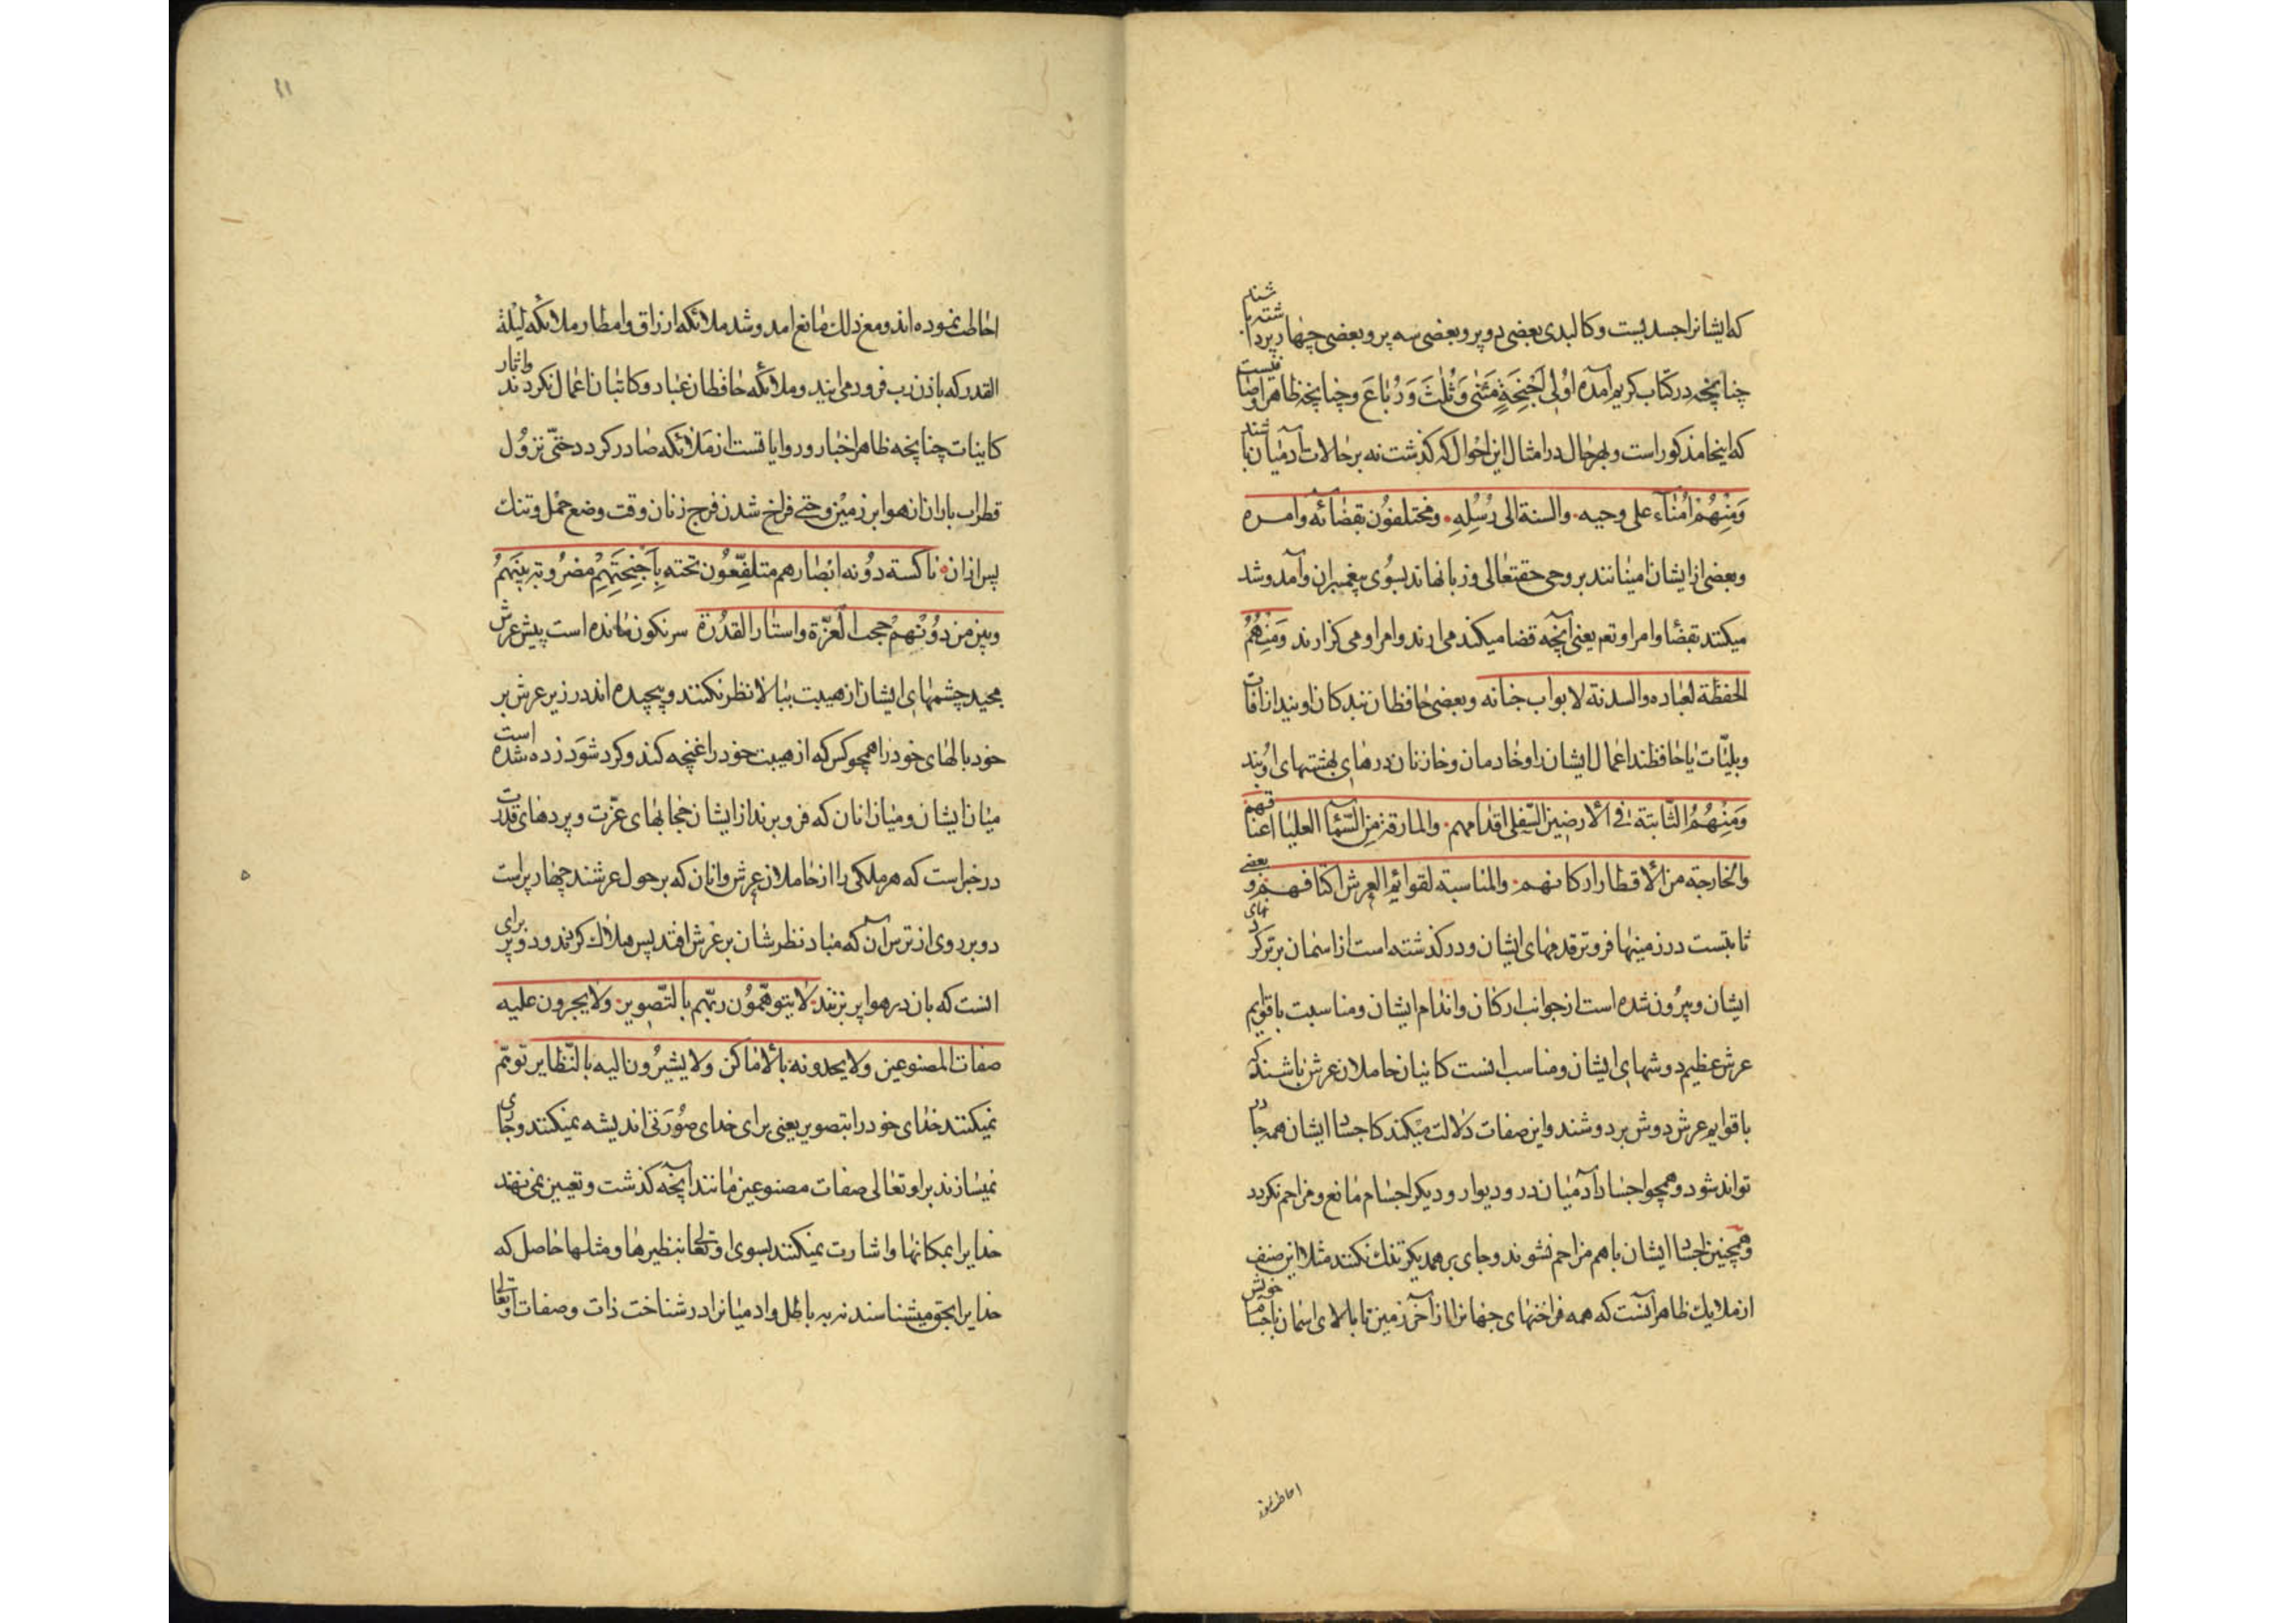 که ایشانرا جسدیست و کالبدی بعضی دوپر و بعضی سه پر و بعضی چهار پر داشته باشند
چنانچه در کتاب کریم آمده اُولِی اَجْنِحَةٍ مَثْنٰی وَثُلٰثَ وَرُبَاعَ و چنانچه ظاهر اوصافیست
که اینجا مذکور است و بهر حال در امثال این احوال که گذشت نه بر حالات آدمیان باشند
وَمِنْهُمْ اُمَنَآء علی وحیه والسنة الی رُسُلِهِ ومختلفون بقضائه وامره
و بعضی از ایشان امینانند بر وحی حقتعالی و زبانهااند بسوی پیغمبران و آمد و شد
میکنند بقضا و امر او تع یعنی آنچه قضا میکند می ارند و امر او می کزارند وَمِنْهُمُ
الحفظة لعباده والسدنة لابواب جنانه و بعضی حافظان بندکان اویند از افات
و بلیّات یا حافظند اعمال ایشان را و خادمان و خازنان درهای بهشتهای اویند
وَمِنْهُمُ الثَّابتة فی الارضین السّفلی اقدامهم والمارقة من السّمآ العلیا اعناقهم
والخارجة من الاقطار ارکانهم والمناسبة لقوائم العرش اکتافهم و بعضی
ثابتست در زمینها فروتر قدمهای ایشان و در کذشته است از اسمان برتر کردنهای
ایشان و بیرون شده است از جوانب ارکان و اندام ایشان و مناسبت با قوایم
عرش عظیم دوشهای ایشان و مناسب انست کاینان حاملان عرش باشند که
با قوایم عرش دوش بر دوشند و این صفات دلالت میکند کاجساد ایشان همه جا در
تواند شود و همچو اجساد آدمیان در و دیوار و دیکر اجسام مانع و مزاحم نکردد
و همچنین اجساد ایشان باهم مزاحم نشوند و جای بر همدیکر تنک نکنند مثلا این صنف
از ملایک ظاهر آنست که همه فراخنهای جهانرا از آخر زمین تا بالای اسمان باجسام خویش
احاطت نموده
احاطت نموده اند و مع ذلک مانع امد و شد ملائکه ارزاق و امطار و ملائکه لیلة
القدر که باذن رب فرود می ایند و ملائکه حافظان عباد و کاتبان اعمال نکردند و اثار
کاینات چنانچه ظاهر اخبار و روایاتست از ملائکه صادر کردد حتّی نزول
قطرات باران از هوا بر زمین و حتی فراخ شدن فرج زنان وقت وضع حمل و تنک
پس از ان ناکسة دُونه ابصارهم متلفّعون تحته بِاَجْنِحَتِهِمْ مضروبة بینهم
وبین من دُوْنَهم حجب العزّة واستار القدرة سرنکون مانده است پیش عرش
مجید چشمهای ایشان از هیبت ببالا نظر نکنند و پیچیده اند در زیر عرش بر
خود بالهای خود را همچو کس که از هیبت خود را غنچه کند و کرد شود زده شده است
میان ایشان و میان انان که فروترند از ایشان حجابهای عزّت و پردهای قدرت
در خبر است که هر ملکی را از حاملان عرش و انان که بر حول عرشند چهار پر است
دو بر روی از ترس آن که مباد نظرشان بر عرش افتد پس هلاک کردند و دو پر برای
انست که بان در هوا پر بزنند لا یتوهّمون ربّهم بالتّصویر ولا یجرون علیه
صفات المصنوعین ولا یحدونه بالاماکن ولا یشیرون الیه بالنّظایر توهّم
نمیکنند خدای خود را بتصویر یعنی برای خدای صورتی اندیشه نمیکنند و جاری
نمیسازند بر او تعالی صفات مصنوعین مانند آنچه کذشت و تعیین نمی نهند
خدایرا بمکانها و اشارت نمیکنند بسوی او تعالی بنظیرها و مثلها حاصل که
خدایرا بحق میشناسند نه بباطل و ادمیانرا در شناخت ذات و صفات او تعالی